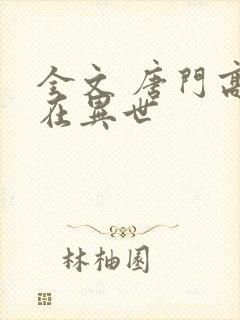 全文 唐門高
在異世
林柚園